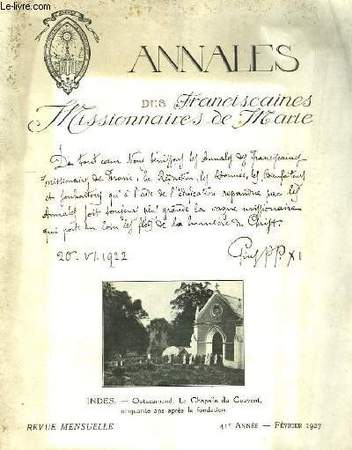 Le-livre.com
ANNALES
DES Franciscaines
Missionnaires de Marie
De tout cœur Nous bénissons les Annales des Franciscaines
missionnaires de Marie, la Rédaction, les Abonnés, les Bienfaiteurs
et
qui à l'aide de l'éducation répandue par les
Annales font toujours plus grande la vague missionnaire
qui porte au loin les de la lumière du Christ.
20. VI. 1922 Pius PP XI
INDES. — Ootacamund. La Chapelle du Couvent,
cinquante ans après la fondation
REVUE MENSUELLE 41e ANNÉE — FÉVRIER 1927